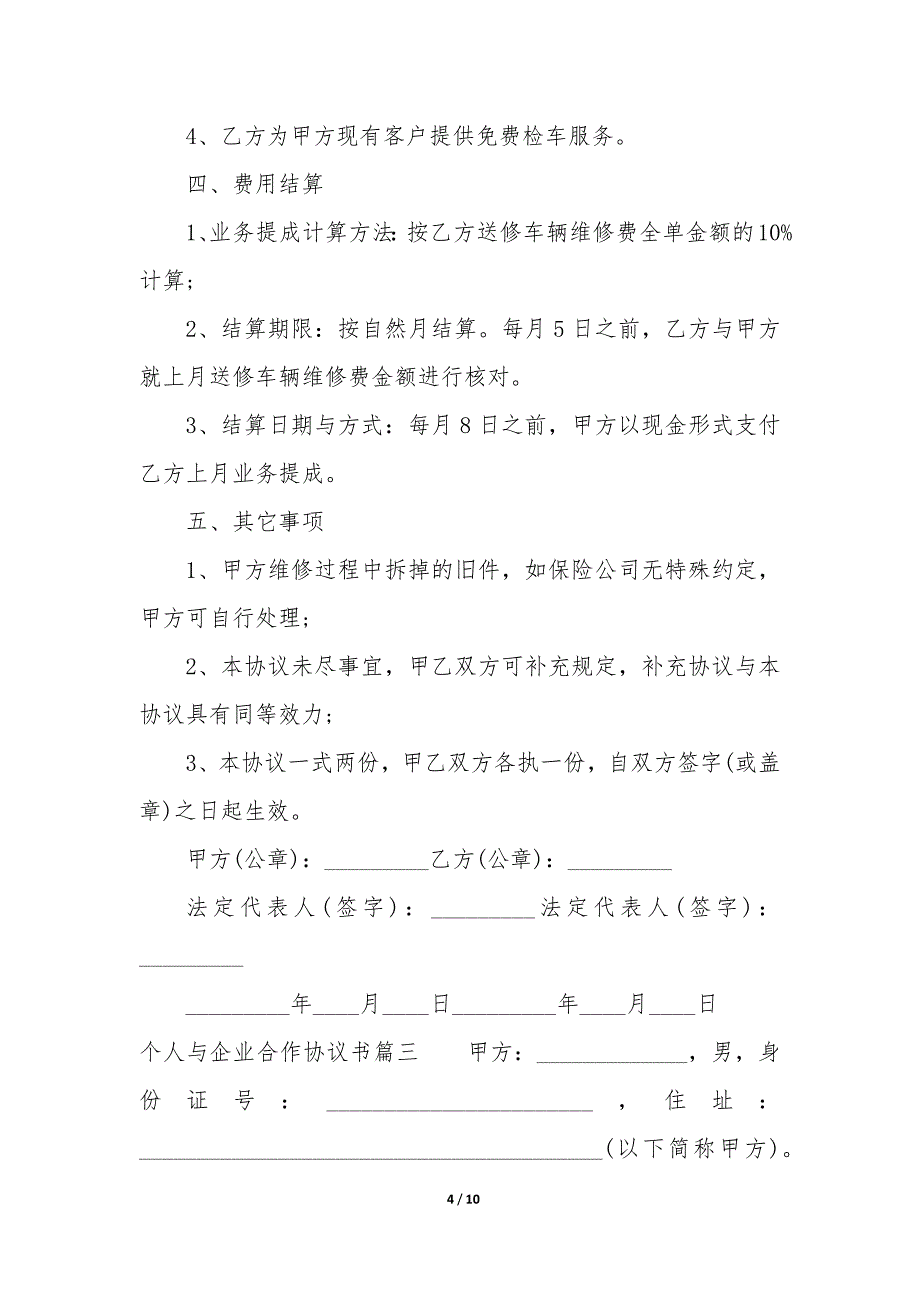 4、乙方为甲方现有客户提供免费检车服务。
四、费用结算
1、业务提成计算方法：按乙方送修车辆维修费全单金额的10%
计算;
2、结算期限：按自然月结算。每月5日之前，乙方与甲方
就上月送修车辆维修费金额进行核对。
3、结算日期与方式：每月8日之前，甲方以现金形式支付
乙方上月业务提成。
五、其它事项
1、甲方维修过程中拆掉的旧件，如保险公司无特殊约定，
甲方可自行处理;
2、本协议未尽事宜，甲乙双方可补充规定，补充协议与本
协议具有同等效力;
3、本协议一式两份，甲乙双方各执一份，自双方签字(或盖
章)之日起生效。
甲方(公章)：_________乙方(公章)：_________
法定代表人(签字)：_________法定代表人(签字)：
_________
_________年____月____日_________年____月____日
个人与企业合作协议书篇三　　甲方：_____________，男，身
份证号：_______________________，住址：
________________________________________(以下简称甲方)。
4 / 10